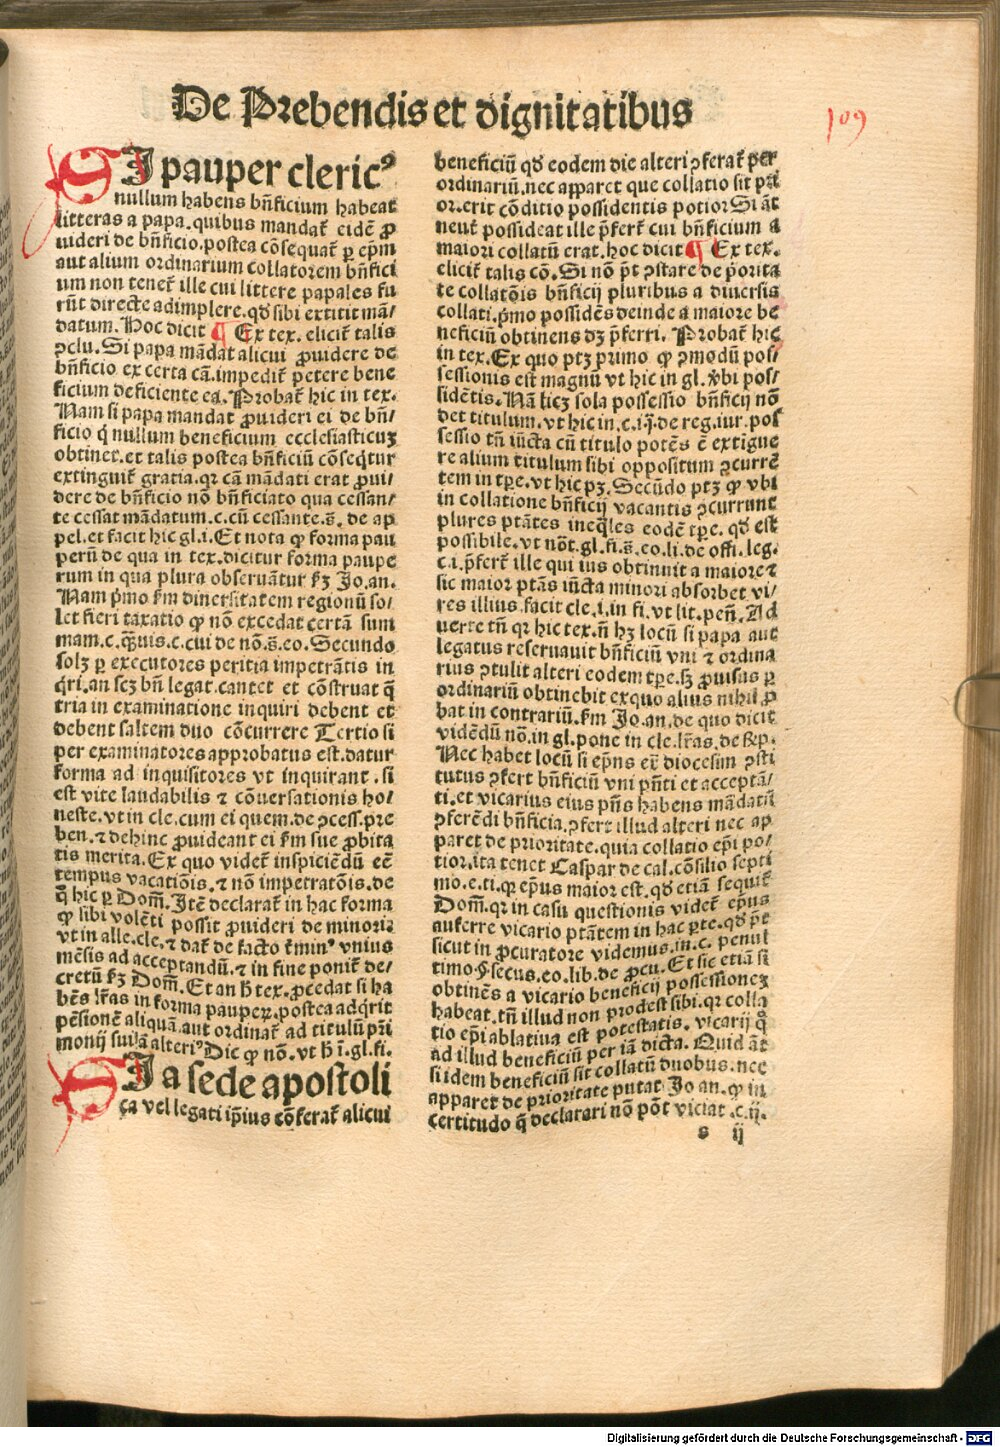 De Prebendis et dignitatibus
109
SI pauper clericꝰ
nullum habens bn̄ficium habeat
litteras a papa.quibus mandat̄ eidē ꝓ
uideri de bn̄ficio.postea cōsequat̄ ꝑ ep̄m
aut alium ordinarium collatorem bn̄fici
um non tenet̄ ille cui littere papales fu
rūt directe adimplere.qd̄ sibi extitit mā/
datum.Hoc dicit ¶ Ex tex. elicit̄ talis
ꝯclu. Si papa mādat alicui ꝓuidere de
bn̄ficio ex certa cā.impedit̄ petere bene
ficium deficiente ea.Probat̄ hic in tex.
Nam si papa mandat ꝓuideri ei de bn̄/
ficio q̇ nullum beneficium ecclesiasticuꝫ
obtinet.et talis postea bn̄ficiū cōseq̇tur
extinguit̄ gratia.qꝛ cā mādati erat ꝓui/
dere de bn̄ficio nō bn̄ficiato qua cessan/
te cessat mādatum.c.cū cessante.s̄. de ap
pel.et facit hic gl.i.Et nota ꝙ forma pau
perū de qua in tex.dicitur forma paupe
rum in qua plura obseruātur ẜꝫ Jo.an.
Nam p̄mo ẜm diuersitatem regionū so/
let fieri taxatio ꝙ nō excedat certā sum
mam.c.q̄uis.c.cui de nō.s̄.eo.Secundo
solꝫ ꝑ executores peritia impetrātis in
q̇ri.an scꝫ bn̄ legat.cantet et cōstruat q̄
tria in examinatione inquiri debent et
debent saltem duo cōcurrere Tertio si
per examinatores approbatus est.datur
forma ad inquisitores vt inquirant.si
est vite laudabilis ⁊ cōuersationis ho/
neste.vt in cle.cum ei quem.de ꝯcess.pre
ben.⁊ dehinc ꝓuideant ei ẜm sue ꝓbita
tis merita.Ex quo videt̄ inspiciēdū eē
tempus vacatiōis.⁊ nō impetratōis.de
q̊ hic ꝑ Dom̄. Jtē declarat̄ in hac forma
ꝙ sibi volēti possit ꝓuideri de minori:
vt in alle.cle.⁊ dat̄ de facto t̄minꝰ vnius
mēsis ad acceptandū.⁊ in fine ponit̄ de/
cretū ẜꝫ Dom̄. Et an h̄ tex.ꝓcedat si ha
bēs lr̄as in forma pauperꝝ.postea adq̇rit
pēsionē aliquā.aut ordinat̄ ad titulū pr̄i
monij sui.ā alteriꝰ Dic ꝙ nō. vt h̄ ī.gl.fi.
SI a sede apostoli
ca vel legati ip̄ius cōferat̄ alicui
beneficiū qd̄ eodem die alteri ꝯferat̄ per
ordinariū.nec apparet que collatio sit pri
or.erit cōditio possidentis potior Si āt
neut̄ possideat ille p̄fert̄ cui bn̄ficium a
maiori collatū erat.hoc dicit ¶ Ex tex.
elicit̄ talis cō. Si nō pt̄ ꝯstare de p̄orita
te collatōis bn̄ficij pluribus a diuersis
collati.p̄mo possidēs deinde a maiore be
neficiū obtinens dꝫ p̄ferri. Probat̄ hic
in tex.Ex quo ptꝫ primo ꝙ ꝯmodū pos/
sessionis est magnū vt hic in gl. v̄bi pos/
sidētis.Nā licꝫ sola possessio bn̄ficij nō
det titulum.vt hic in.c.i.de reg.iur.pos
sessio tn̄ iūcta cū titulo potēs ē extīgue
re alium titulum sibi oppositum ꝯcurrē
tem in tꝑe.vt hic pꝫ.Secūdo ptꝫ ꝙ vbi
in collatione bn̄ficij vacantis ꝯcurrunt
plures ptātes ineq̄les eodē tꝑe. qd̄ est
possibile.vt nōt.gl.fi.s̄.eo.li.de offi.leg.
c.i.p̄fert̄ ille qui ius obtinuit a maiore ⁊
sic maior ptās iūcta minori absorbet vi/
res illius.facit cle.i.in fi.vt lit.pen̄.Ad
uerte tn̄ qꝛ hic tex.n̄ hꝫ locū si papa aut
legatus reseruauit bn̄ficiū vni ⁊ ordina
rius ꝯtulit alteri eodem tꝑe.sꝫ ꝓuisus ꝑ
ordinariū obtinebit exquo alius nihil ꝓ
bat in contrariū.ẜm Jo.an.de quo dicit
vidēdū nō.in gl.pone in cle.lr̄as.de rescrip.
Nec habet locū si ep̄us ex̄ diocesim ꝯsti
tutus ꝯfert bn̄ficiū vni p̄nti et acceptā/
ti.et vicarius eius p̄n̄s habens mādatū
ꝯferēdi bn̄ficia.ꝯfert illud alteri nec ap
paret de prioritate.quia collatio ep̄i po/
tior.ita tenet Caspar de cal.cōsilio septi
mo.e.ti.qꝛ ep̄us maior est.qd̄ etiā sequit̄
Dom̄.qꝛ in casu questionis videt̄ ep̄us
auferre vicario ptātem in hac ꝑte.qd̄ pt̄
sicut in ꝓcuratore videmus.in.c. penul
timo.§ secus.eo.lib.de ꝓcu. Et sic etiā si
obtinēs a vicario beneficij possessionez
habeat.tn̄ illud non prodest sibi.qꝛ colla
tio ep̄i ablatiua est potestatis. vicarij q̊
ad illud beneficiū per iā dicta. Quid āt
si idem beneficiū sit collatū duobus.nec
apparet de prioritate putat Jo an. ꝙ in
certitudo q̄ declarari nō pōt viciat .c.ij.
s ij
Digitalisierung gefördert durch die Deutsche Forschungsgemeinschaft - DFG